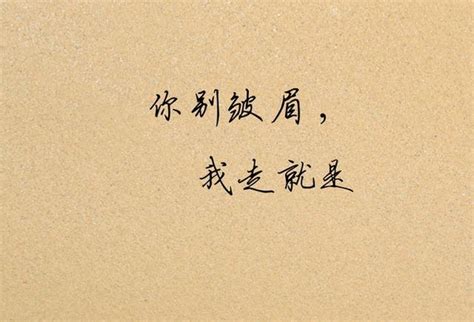 你别皱眉，
我走就是